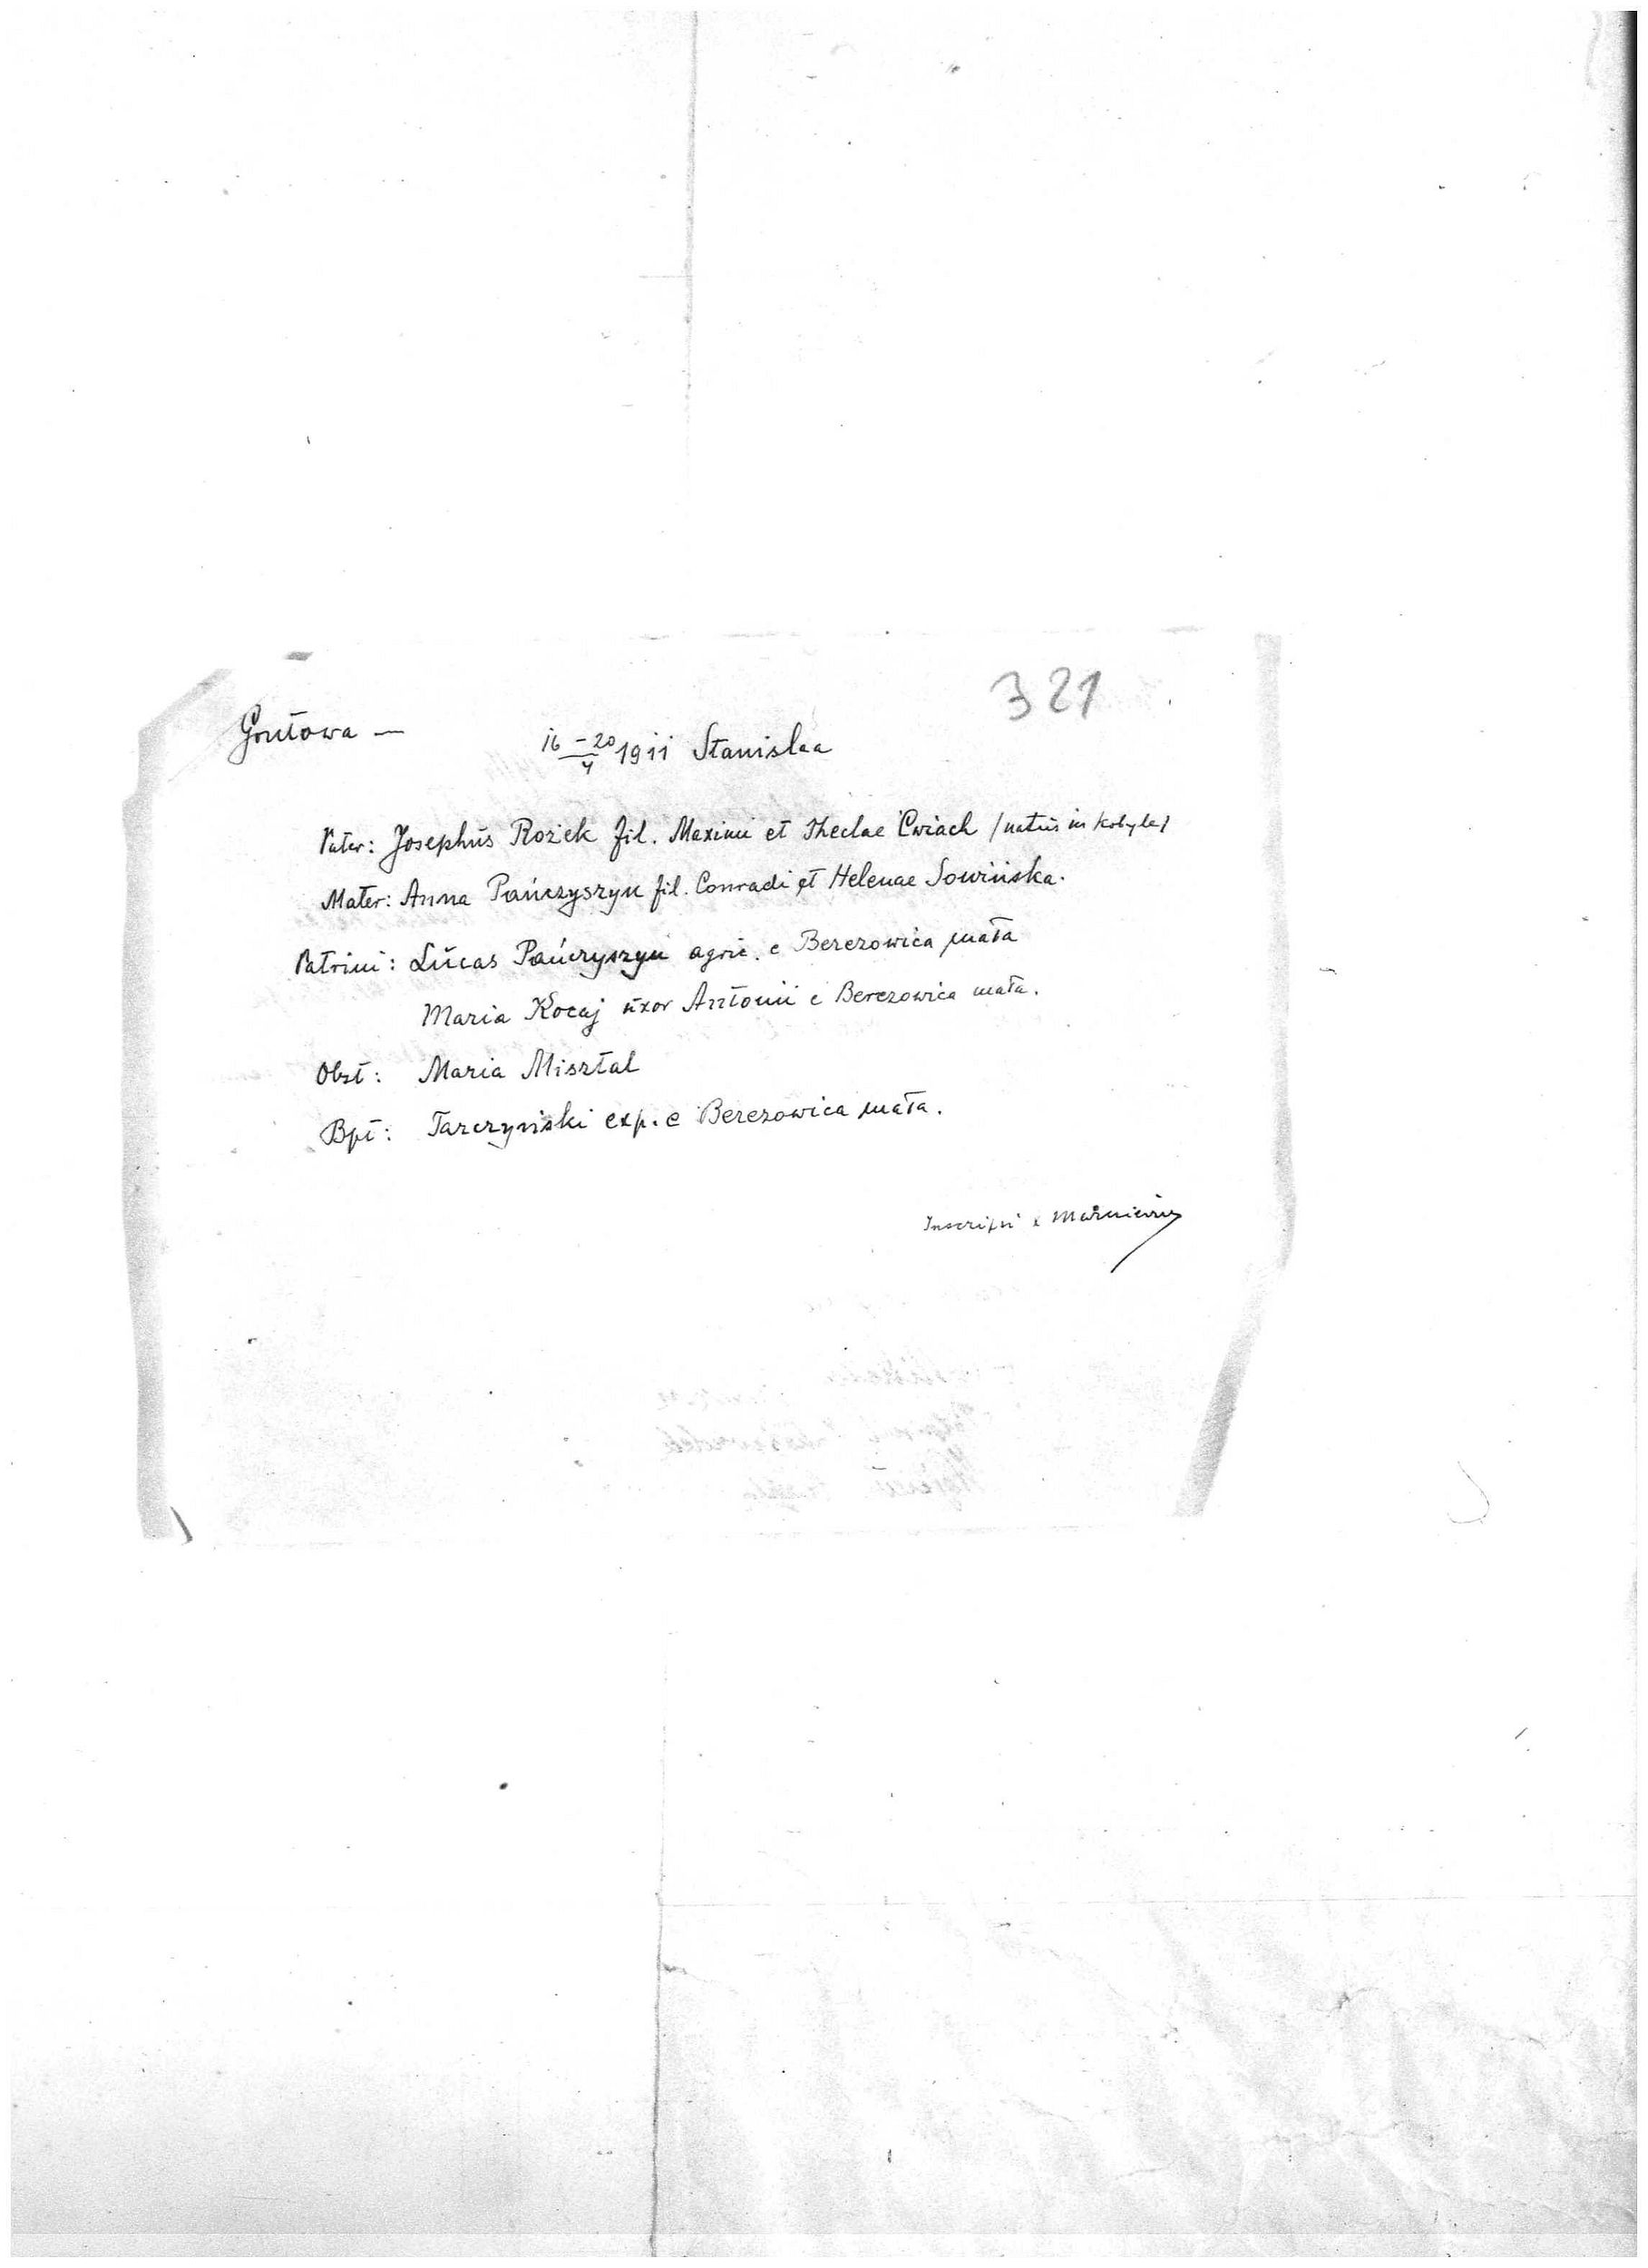 321
Gontowa —
16 – 20/4 1911 Stanislaa
Pater: Josephus Rożek fil. Maximi et Theclae Ćwiach /natus in Kobyle/
Mater: Anna Pańczyszyn fil. Conradi et Helenae Sowińska.
Patrini: Lucas Pańczyszyn agric. e Berezowica mała
Maria Kocaj uxor Antonii e Berezowica mała.
Obst: Maria Misztal
Bpt: Tarczyński exp. e Berezowica mała.
Inscripsi x